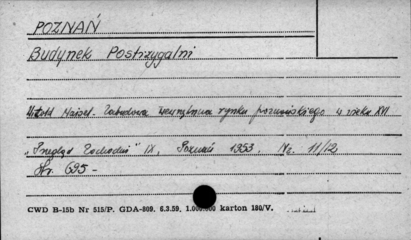 POZNAŃ
Budynek Postrzygalni
Witold Maisel. Zabudowa wewnętrzna rynku poznańskiego w wieku XVI
"Przegląd Zachodni" IX, Poznań 1953, Nr. 11/12
Str. 695-
CWD B-15b Nr 515/P. GDA-809. 6.3.59. 1.000.000 karton 180/V.